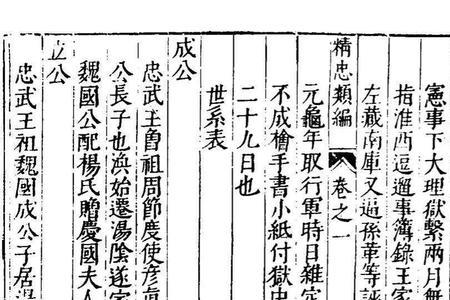 憲事下大理獄繫兩月無
指淮西逗遛事簿錄王家
左藏南庫又逼孫革等
精忠類編 卷之一
元龜年取行軍時日雜定
不成檜手書小紙付獄中
二十九日也
世系表
成公
忠武王魯祖周節度使彥真
公長子也浜始遷湯陰遂家
魏國公配楊氏贈慶國夫人
立公
忠武王祖魏國成公子居湯